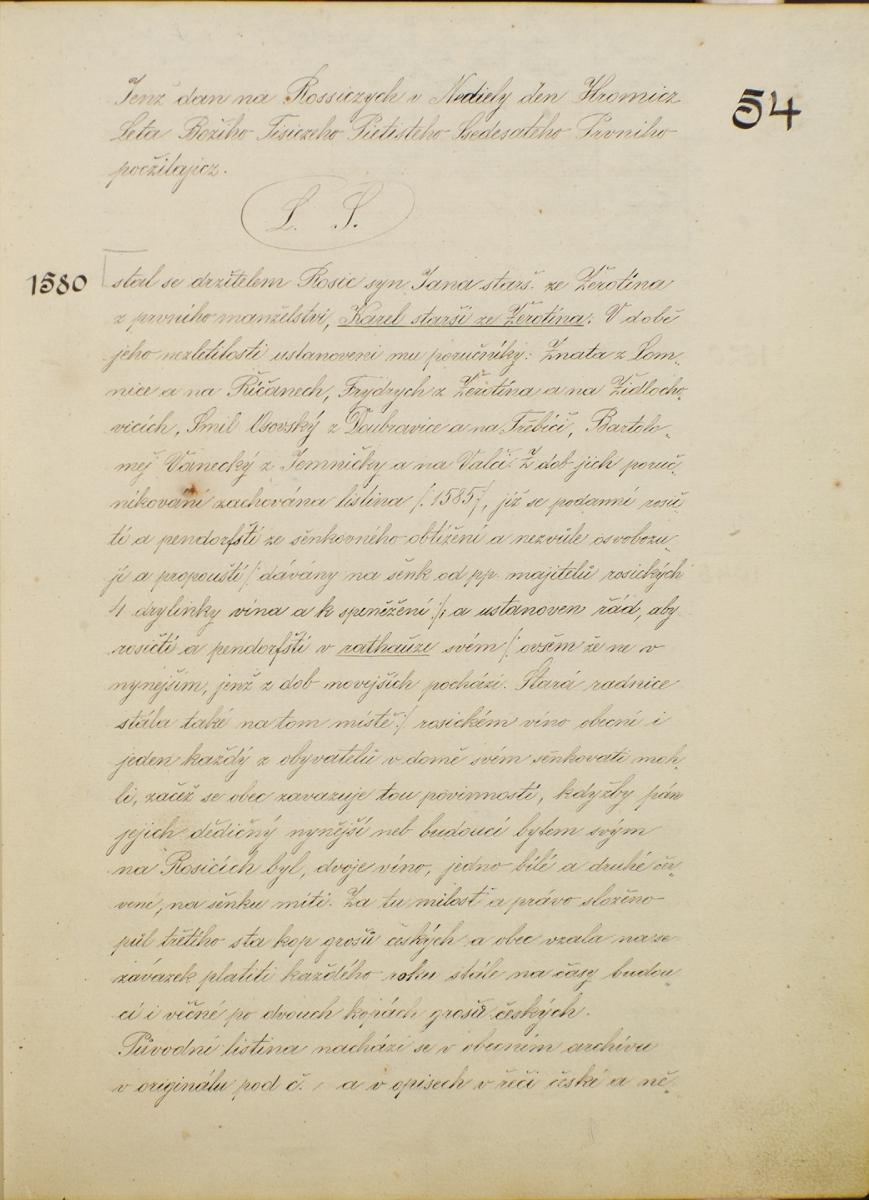 54
Jenž dan na Rossiczych v Nediely den Hromicz
Leta Božiho Tisiczeho Pietisteho Ssedesateho Prvniho
pocžitajicz.
L. S.
1580
stal se držitelem Rosic syn Jana starš. ze Žerotína
z prvního manželství, Karel starší ze Žerotína. V době
jeho nezletilosti ustanoveni mu poručníky: Znata z Lom-
nice a na Říčanech, Frydrych z Žerotína a na Židlocho-
vicích, Smil Osovský z Doubravice a na Třebíči, Bartolo-
měj Vanecký z Jemničky a na Valči. Z dob jich poruč-
níkování zachována listina /:1585/, jíž se poddaní rosič-
tí a pendorfští ze šenkovného obtížení a nezvůle osvobozu-
jí a propouští /:dávány na šenk od pp. majitelů rosických
4 drylinky vína a k speněžení:/ a ustanoven řád, aby
rosičtí a pendorfští v rathauze svém /:ovšem že ne v
nynějším, jenž z dob novějších pochází. Stará radnice
stála také na tom místě:/ rosickém víno obecní i
jeden každý z obyvatelů v domě svém šenkovati moh-
li, začež se obec zavazuje tou povinností, kdyžby pán
jejich dědičný nynější neb budoucí bytem svým
na Rosicích byl, dvoje víno, jedno bílé a druhé čer-
vené, na šenku míti. Za tu milost a právo složeno
půl třetího sta kop grošů českých a obec vzala na se
závazek platiti každého roku stále na časy budou-
cí i věčné po dvouch kopách grošů českých.
Původní listina nachází se v obecním archivu
v originálu pod č. , a v opisech v řeči české a ně-